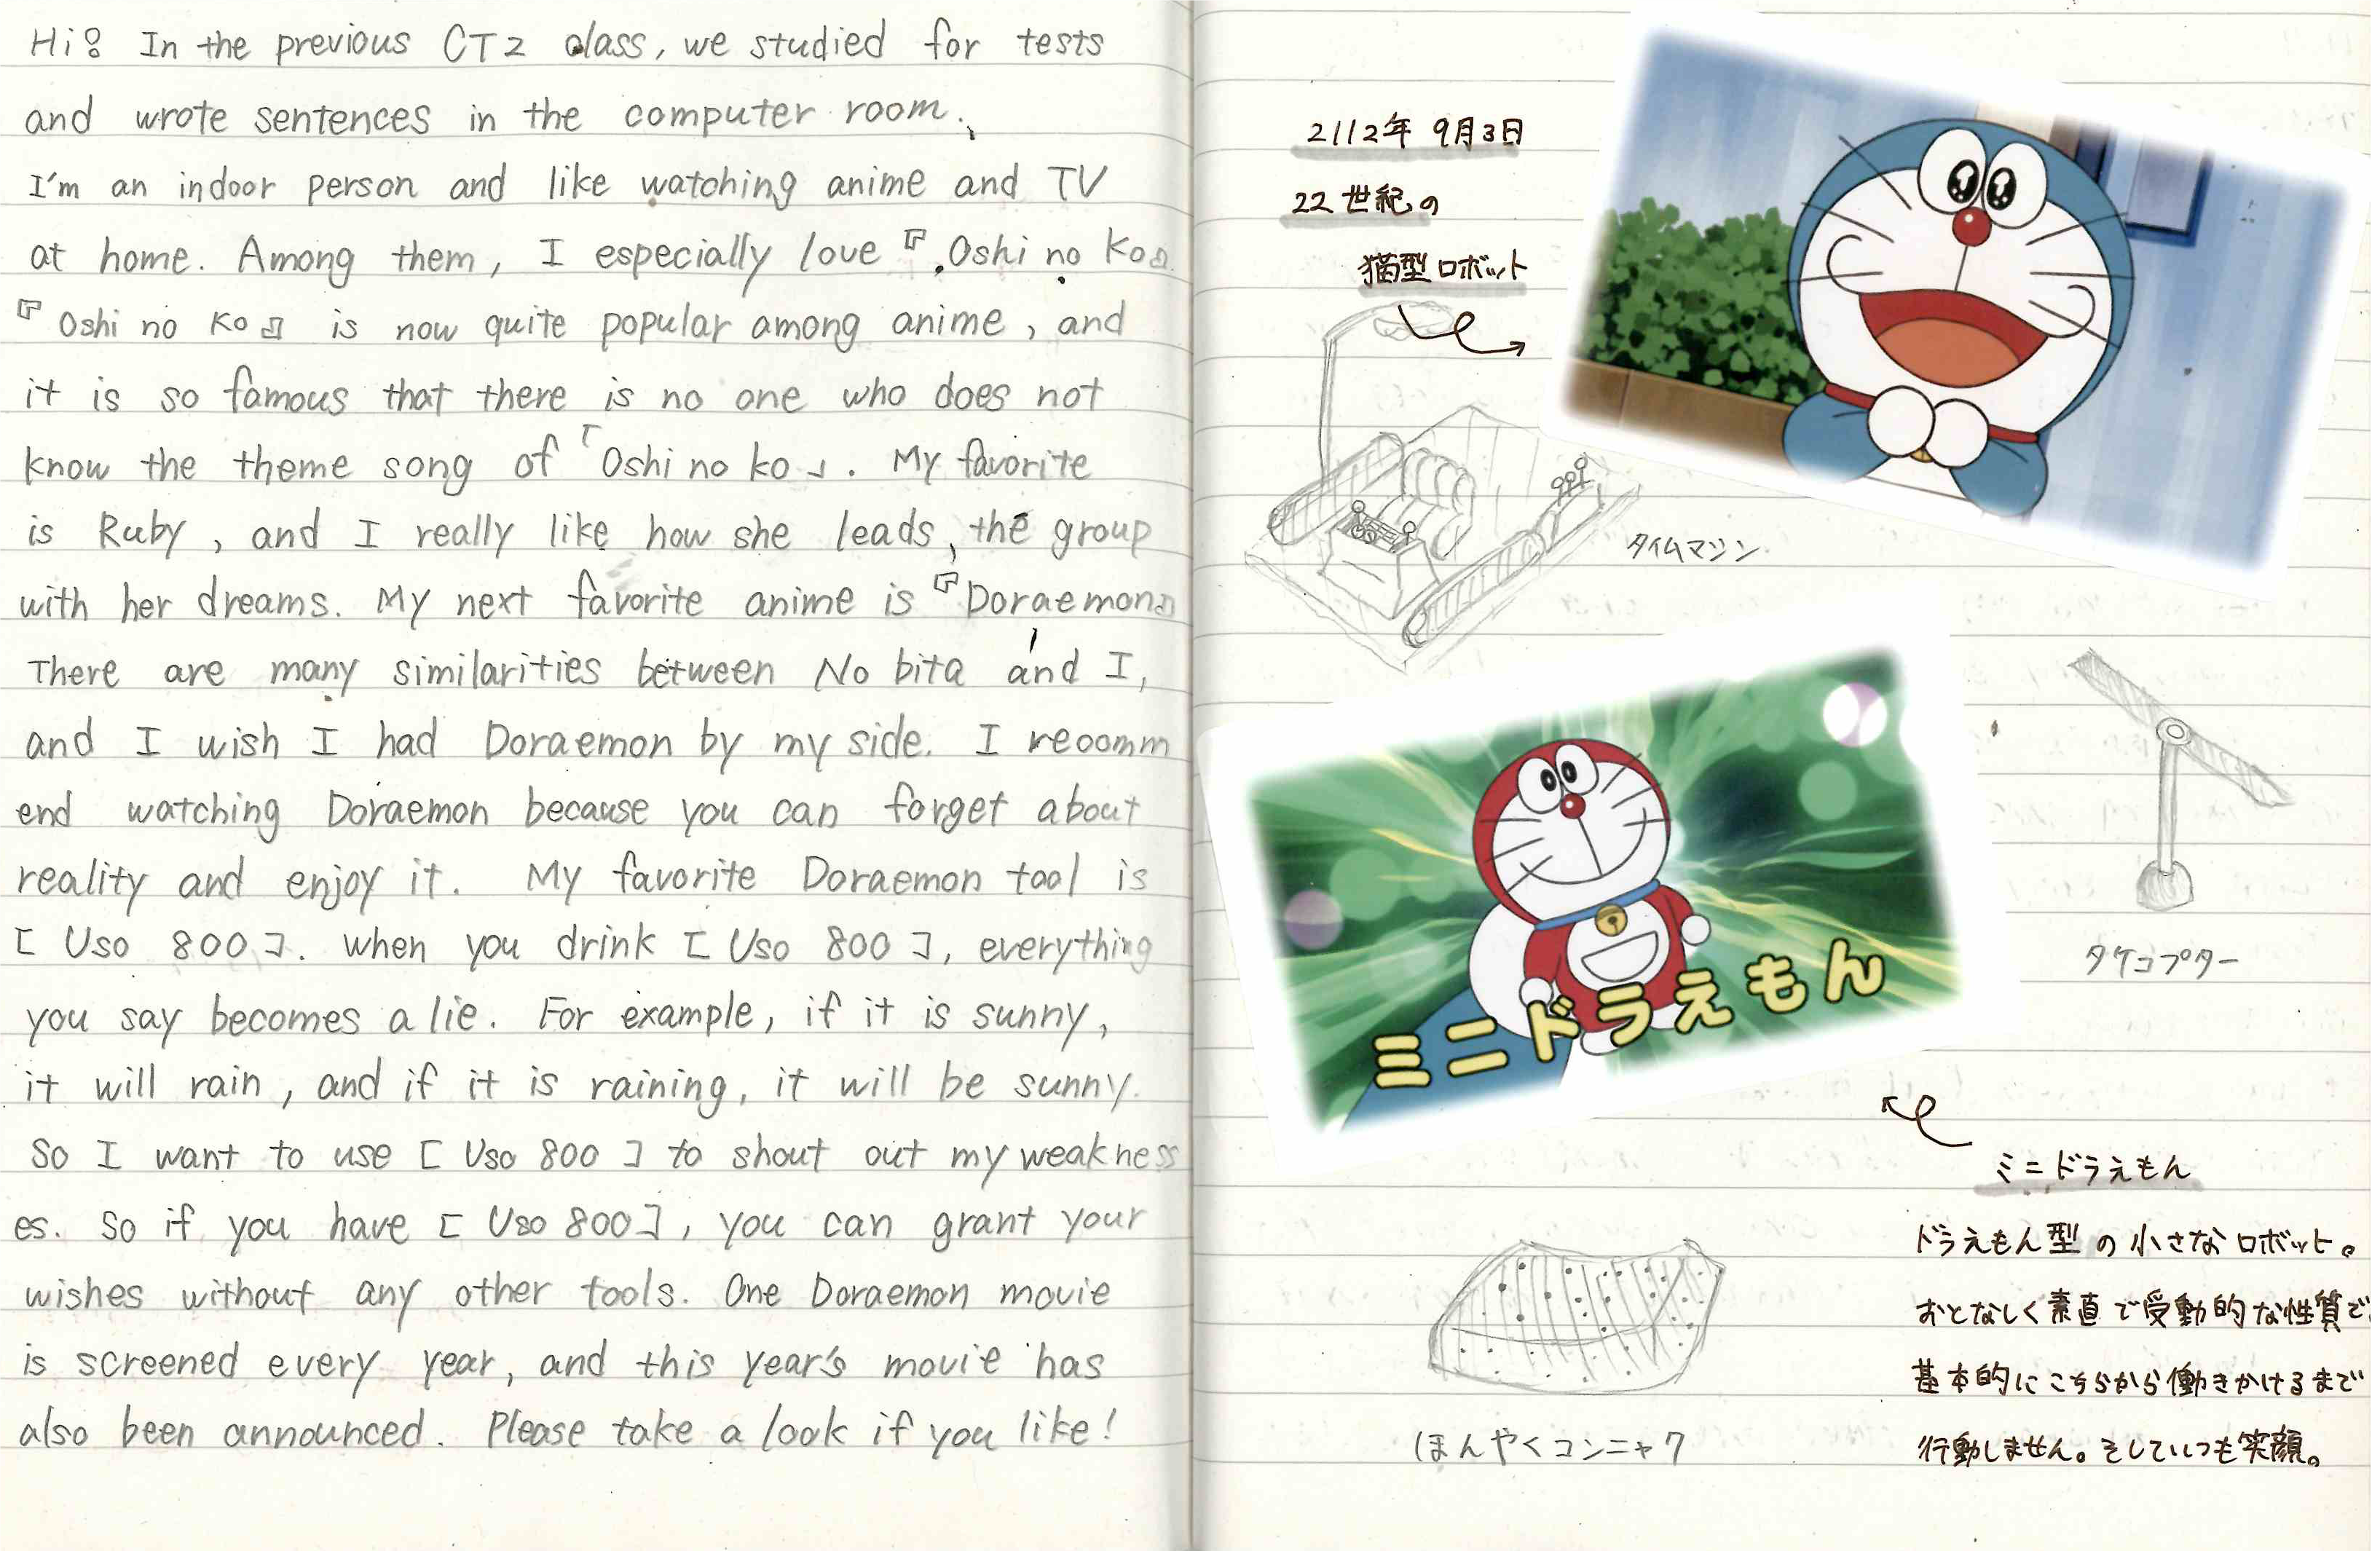 Hi! In the previous CT2 class, we studied for tests
and wrote sentences in the computer room.
I'm an indoor person and like watching anime and TV
at home. Among them, I especially love 『Oshi no Ko』
『Oshi no Ko』 is now quite popular among anime, and
it is so famous that there is no one who does not
know the theme song of 「Oshi no ko」. My favorite
is Ruby, and I really like how she leads, the group
with her dreams. My next favorite anime is 『Doraemon』
There are many similarities between No bita and I,
and I wish I had Doraemon by my side. I recomm
end watching Doraemon because you can forget about
reality and enjoy it. My favorite Doraemon tool is
[ Uso 800 ]. When you drink [ Uso 800 ], everything
you say becomes a lie. For example, if it is sunny,
it will rain, and if it is raining, it will be sunny.
So I want to use [ Uso 800 ] to shout out my weakness
es. So if you have [ Uso 800 ], you can grant your
wishes without any other tools. One Doraemon movie
is screened every year, and this year's movie has
also been announced. Please take a look if you like!
2112年 9月3日
22世紀の
猫型ロボット
タイムマシン
タケコプター
ミニドラえもん
ミニドラえもん
ドラえもん型の小さなロボット。
おとなしく素直で受動的な性質で、
基本的にこちらから働きかけるまで
行動しません。そしていつも笑顔。
ほんやくコンニャク